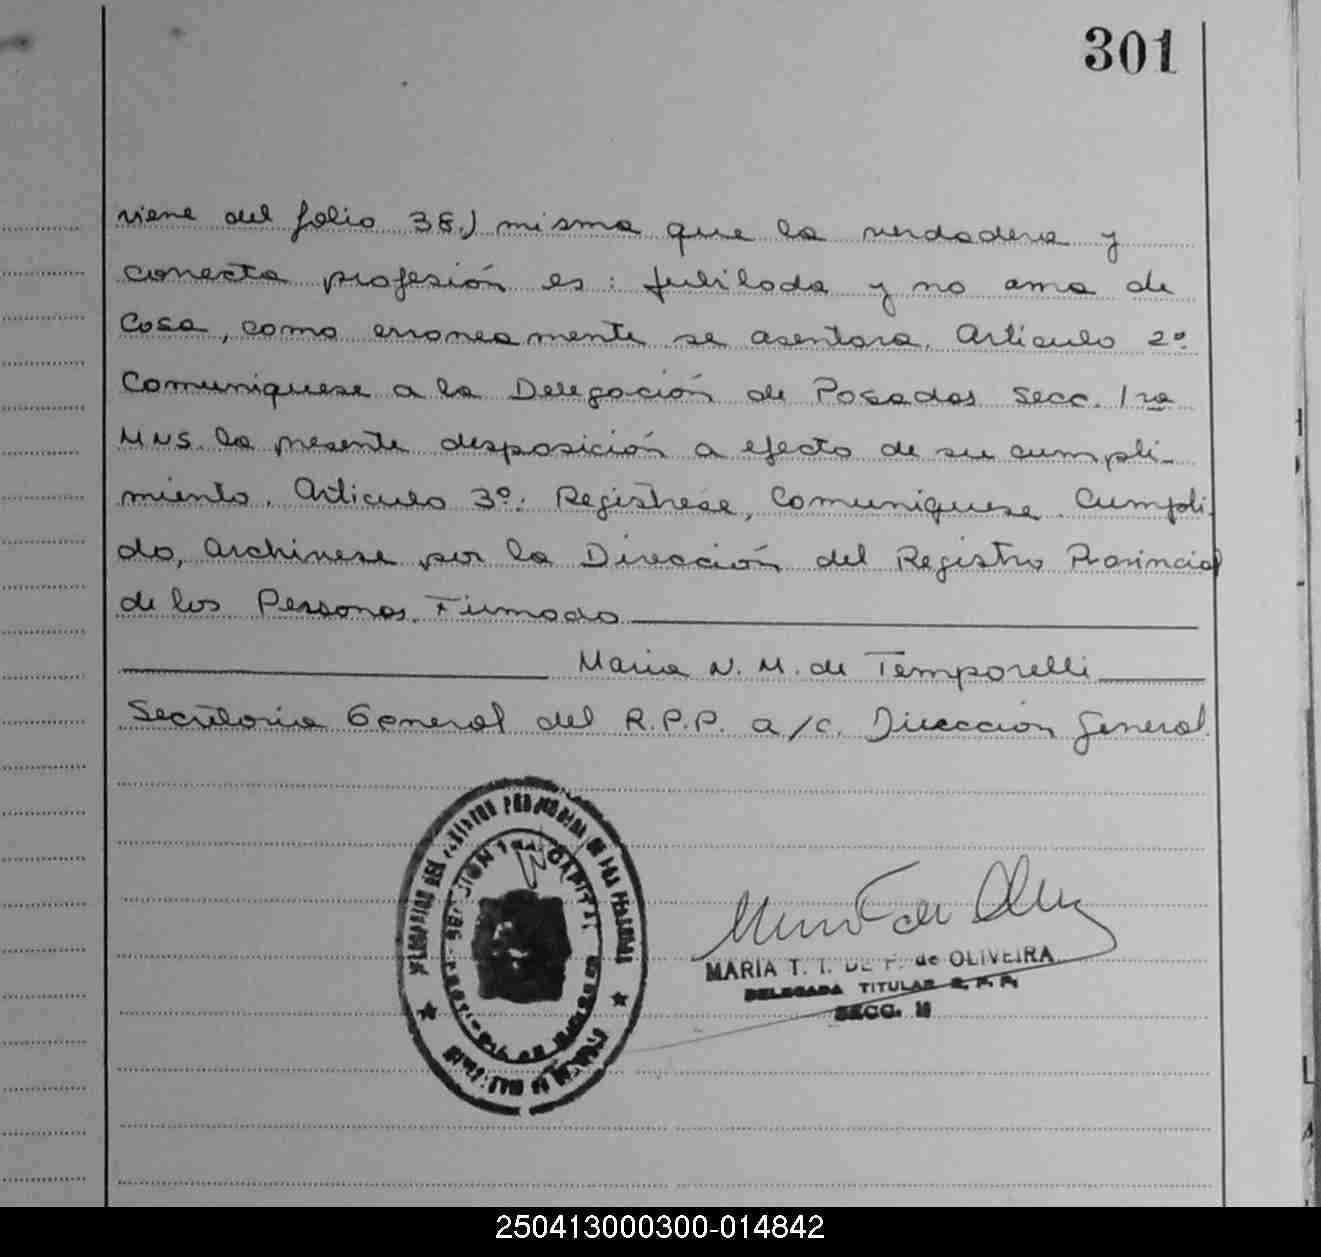 301
viene del folio 38.) misma que la verdadera y
correcta profesión es: Jubilada y no ama de
casa, como erroneamente se asentara. Artículo 2º
Comuniquese a la Delegación de Posadas Secc. 1ra
MNS. la presente disposición a efecto de su cumpli-
miento. Artículo 3º: Registrese, Comuniquese. Cumpli-
do, archivese por la Dirección del Registro Provincial
de las Personas. Firmado
Maria N. M. de Temporelli
Secretaria General del R.P.P. a/c. Dirección General.
SECCION 1ra. CAPITAL
MARIA T. T. DE F. de OLIVEIRA
DELEGADA TITULAR R. P. P.
SECC. 1ª
250413000300-014842